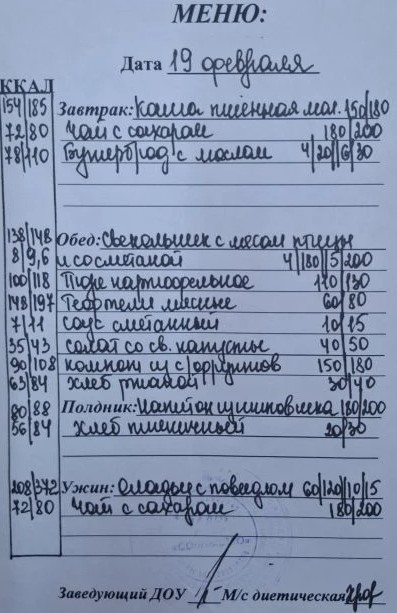 МЕНЮ:
Дата 19 февраля
ККАЛ
154/185 Завтрак: Каша пшенная мол. 150/180
72/80 Чай с сахаром 180/200
78/110 Бутерброд с маслом 4/20/6/30
138/148 Обед: Свекольник с мясом птицы
8/9,6 и со сметаной 4/180/5/200
100/118 Пюре картофельное 110/130
148/197 Тефтели мясные 60/80
7/11 соус сметанный 10/15
35/43 салат со св. капусты 40/50
90/108 компот из с/фруктов 150/180
63/84 хлеб ржаной 30/40
80/88 Полдник: Напиток шиповника 180/200
56/84 хлеб пшеничный 20/30
208/372 Ужин: Оладьи с повидлом 60/120/10/15
72/80 Чай с сахаром 180/200
Заведующий ДОУ М/с диетическая